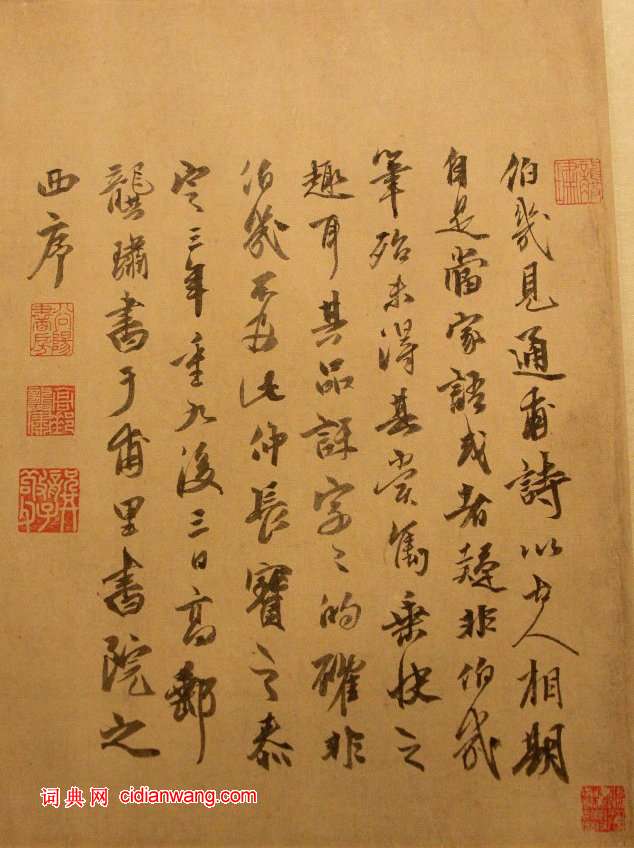 伯幾見通甫詩以古人相期
自是當家語或者疑非伯幾
筆殆未得其賞雋乘快之
趣耳其品評字〻的確非
伯幾不 此仲長寶之泰
定三年重九後三日高郵
龔璛書于甫里書院之
西序
谷陽書房
高郵龔璛
词典网 cidianwang.com